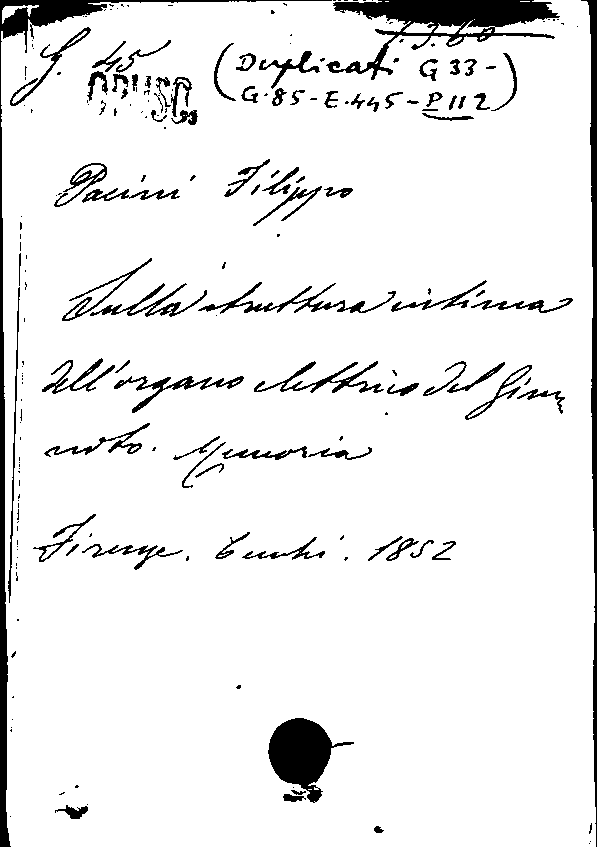 1.3.60
G. 45 (Duplicati G 33 -
OPUSC. G. 85 - E. 445 - P 112)
Pacini Filippo
Sulla struttura intima
dell'organo elettrico del Gim=
noto. Memoria
Firenze. Cecchi. 1852